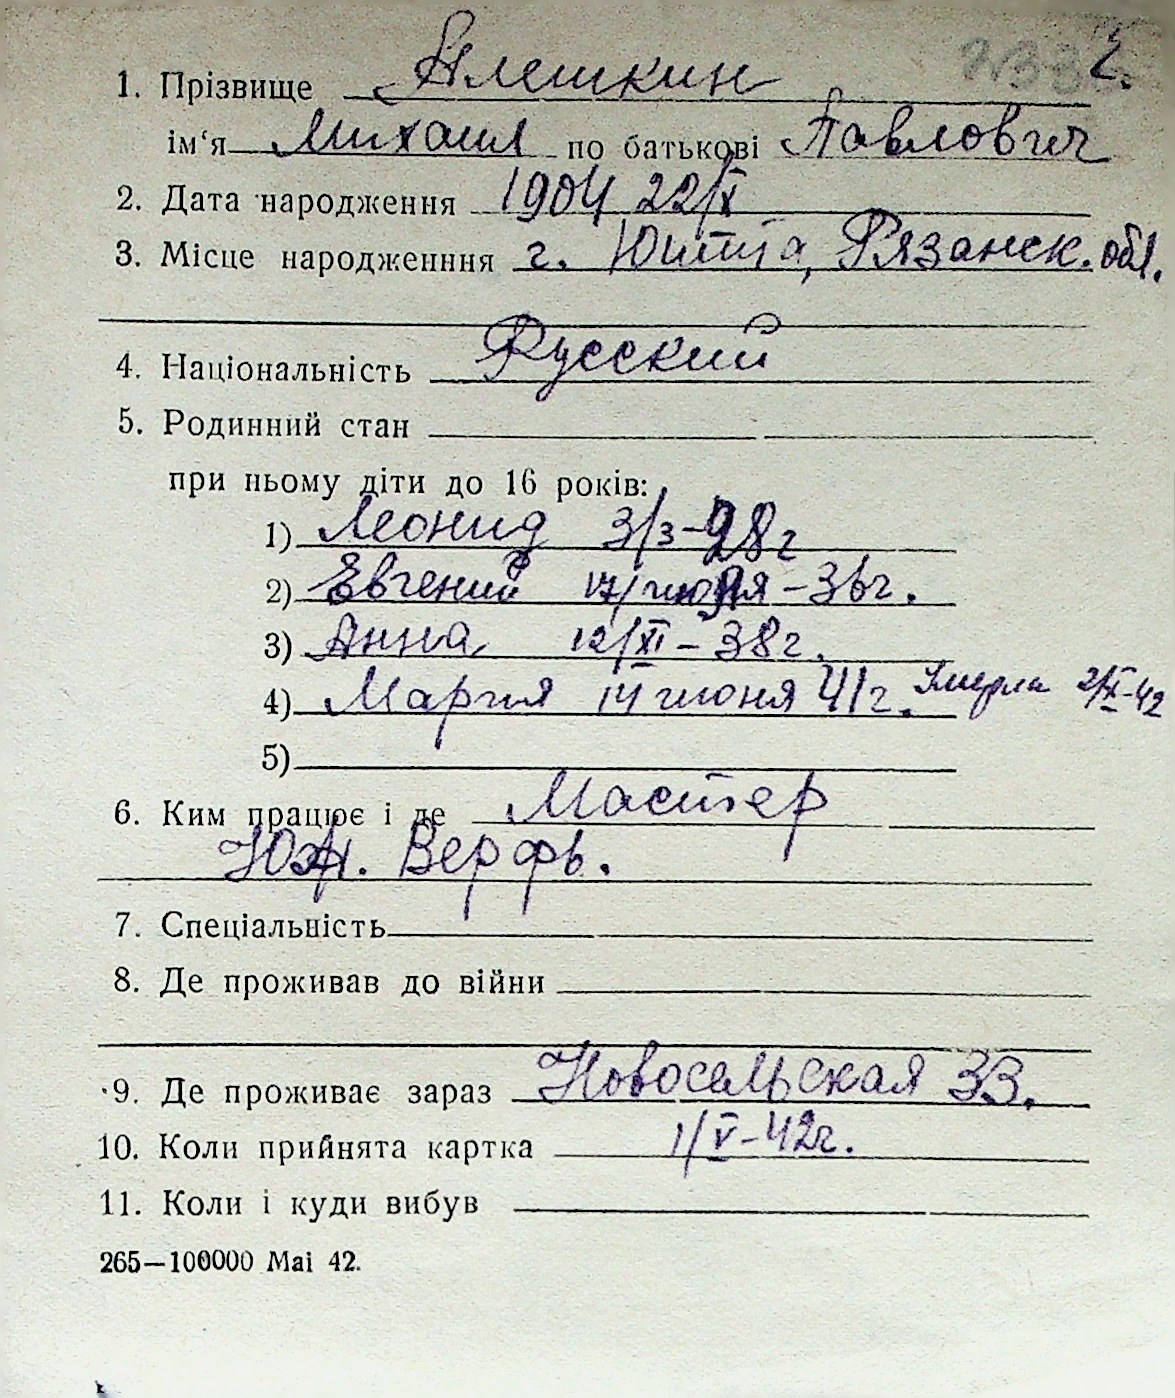 1. Прізвище Алешкин
ім‘я Михаил по батькові Павлович
2. Дата народження 1904 22/X
3. Місце народженння г. Рязанск. обл.
4. Національність Русский
5. Родинний стан
при ньому діти до 16 років:
1) Леонид 3/3-28г
2) Евгений 17/ -36г.
3) Анна 12/XI-38г.
4) Мария 14 июня 41г. Умерла 2/IX-42
5)
6. Ким працює і де Мастер
Юж. Верфь.
7. Спеціальність
8. Де проживав до війни
9. Де проживає зараз Новосельская 33.
10. Коли прийнята картка 1/V-42г.
11. Коли і куди вибув
265—100000 Mai 42.